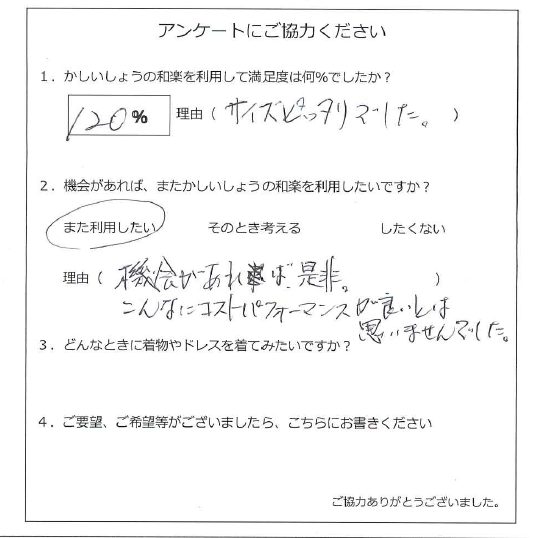 アンケートにご協力ください
1．かしいしょうの和楽を利用して満足度は何%でしたか？
120% 理由（ サイズピッタリでした。 ）
2．機会があれば、またかしいしょうの和楽を利用したいですか？
また利用したい そのとき考える したくない
理由（ 機会があれば、是非。 ）
こんなにコストパフォーマンスが良いとは
思いませんでした。
3．どんなときに着物やドレスを着てみたいですか？
4．ご要望、ご希望等がございましたら、こちらにお書きください
ご協力ありがとうございました。